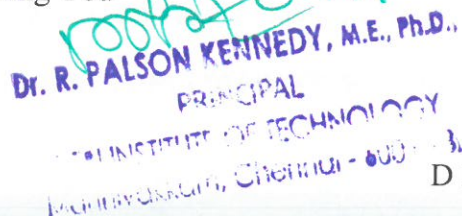 Dr. R. PALSON KENNEDY, M.E., Ph.D.,
PRINCIPAL
INSTITUTE OF TECHNOLOGY
Chennai - 600
D